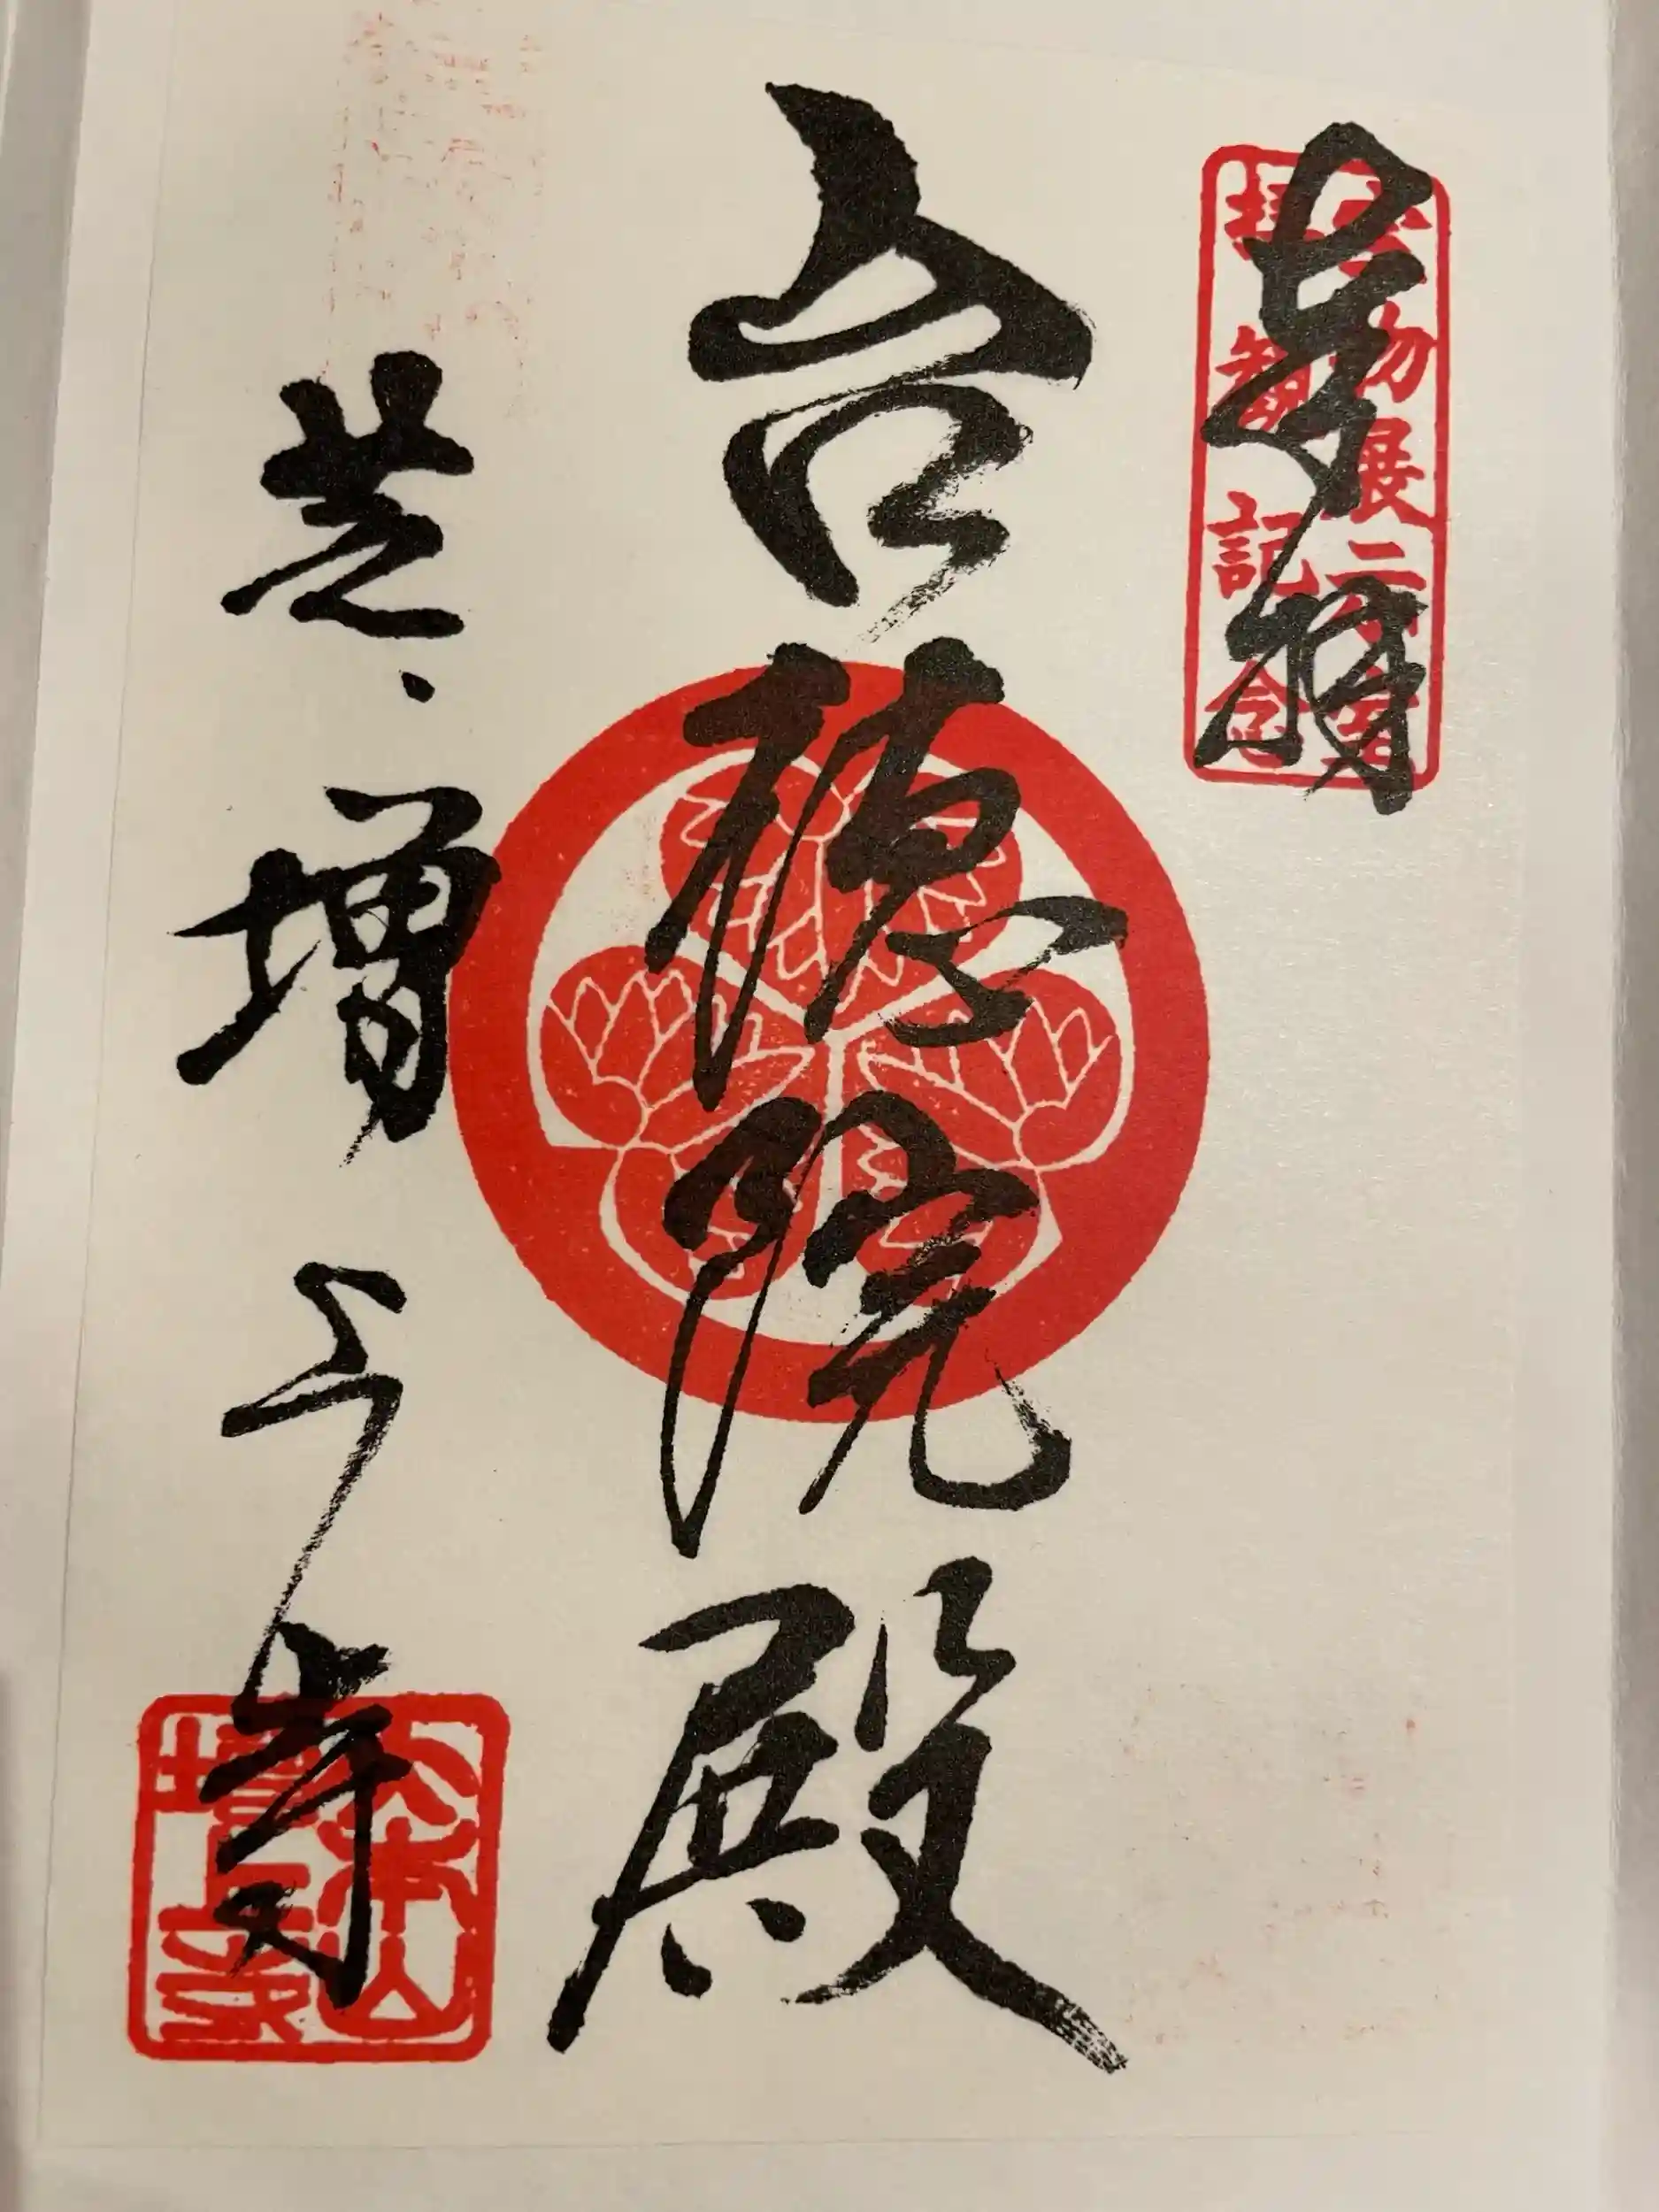 奉拝
宝物展示室
拝観記念
台德院殿
芝・増上寺
大本山
増上寺